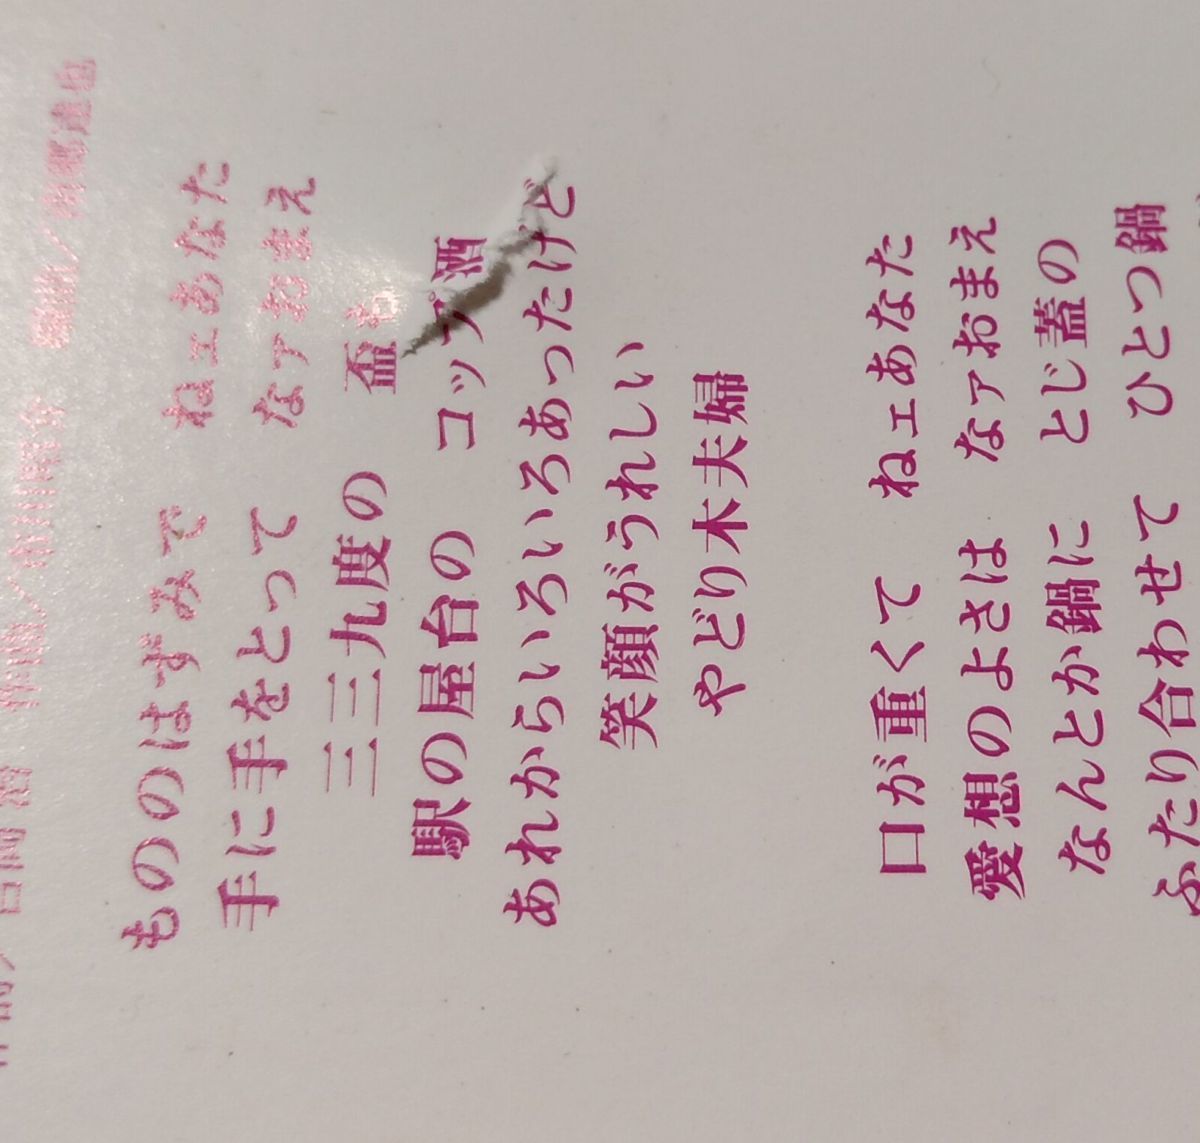 作詞／吉岡治 作曲／市川昭介 編曲／南郷達也
もののはずみで ねェあなた
手に手をとって なァおまえ
三三九度の 盃も
駅の屋台の コップ酒
あれからいろいろあったけど
笑顔がうれしい
やどり木夫婦
口が重くて ねェあなた
愛想のよさは なァおまえ
なんとか鍋に とじ蓋の
ふたり合わせて ひとつ鍋